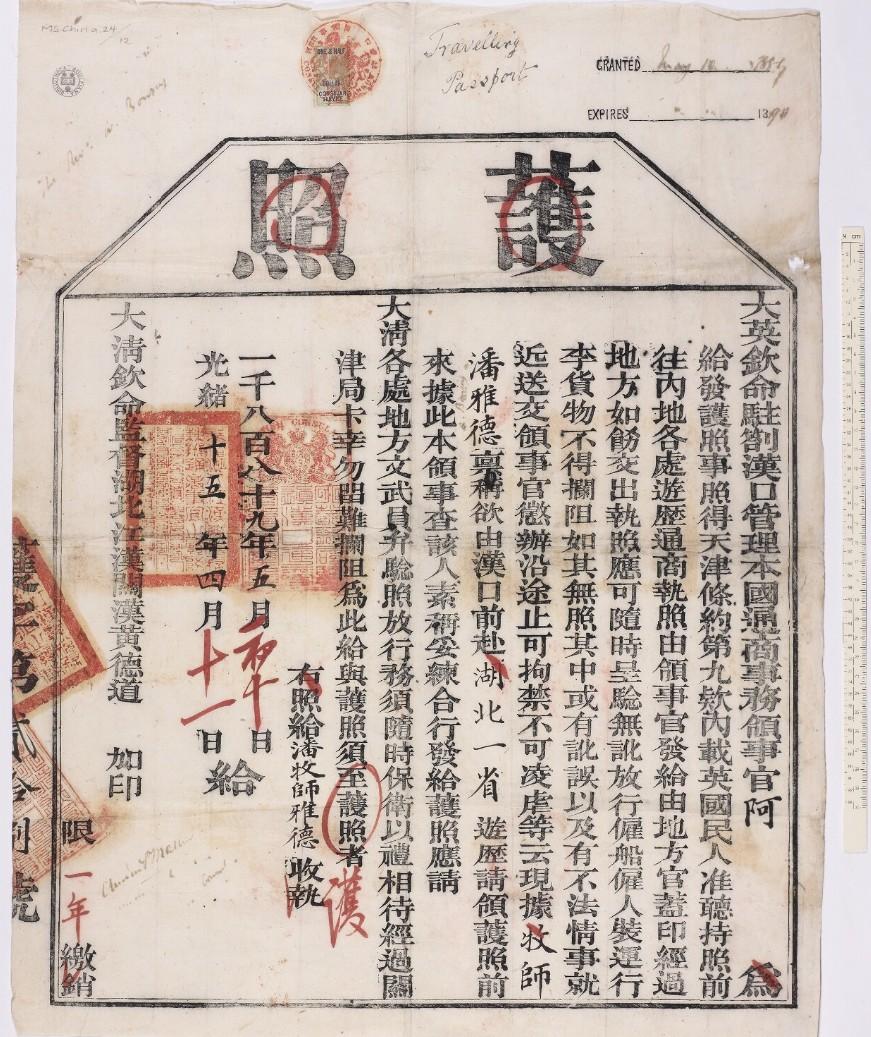 MS. China. 24/12
Travelling
Passport
GRANTED May
EXPIRES 1890
護照
大英欽命駐劄漢口管理本國通商事務領事官阿 爲
給發護照事照得天津條約第九款內載英國民人准聽持照前
往內地各處遊歷通商執照由領事官發給由地方官蓋印經過
地方如飭交出執照應可隨時呈驗無訛放行僱船僱人裝運行
李貨物不得攔阻如其無照其中或有訛誤以及有不法情事就
近送交領事官懲辦沿途止可拘禁不可凌虐等云現據牧師
潘雅德稟稱欲由漢口前赴湖北一省遊歷請領護照前
來據此本領事查該人素稱妥練合行發給護照應請
大清各處地方文武員弁驗照放行務須隨時保衛以禮相待經過關
津局卡幸勿留難攔阻爲此給與護照須至護照者
護
右照給潘牧師雅德收執
一千八百八十九年五月初十日
光緒十五年四月十一日給
大清欽命監督湖北江漢關漢黃德道 加印
限一年繳銷
號